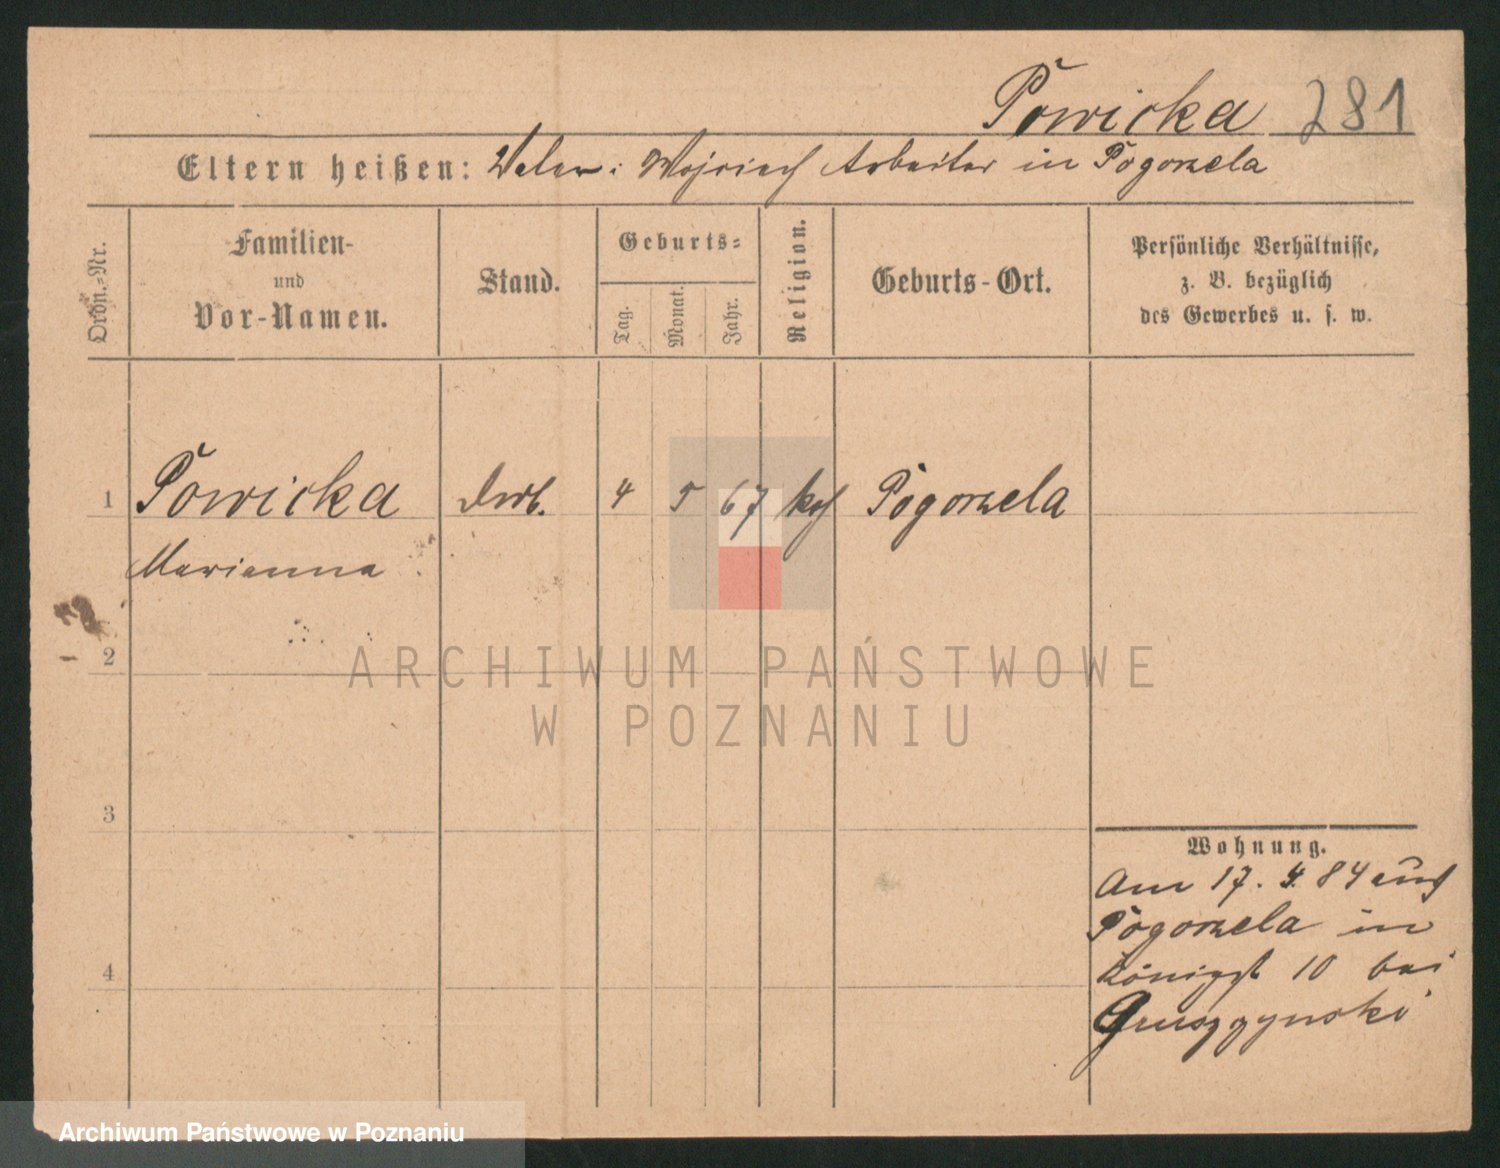 Powicka 281
Eltern heißen: Vater: Wojciech Arbeiter in Pogorzela
Ordn.-Nr.
Familien-
und
Vor-Namen.
Stand.
Geburts-
Tag.
Monat.
Jahr.
Religion.
Geburts-Ort.
Persönliche Verhältnisse,
z. B. bezüglich
des Gewerbes u. s. w.
1 Powicka 4 5 67 kath Pogorzela
Marianna
2
3
4
Wohnung.
Am 17. 4. 84 aus
Pogorzela in
Königst 10 bei
Gruszczynski
ARCHIWUM PAŃSTWOWE
W POZNANIU
Archiwum Państwowe w Poznaniu